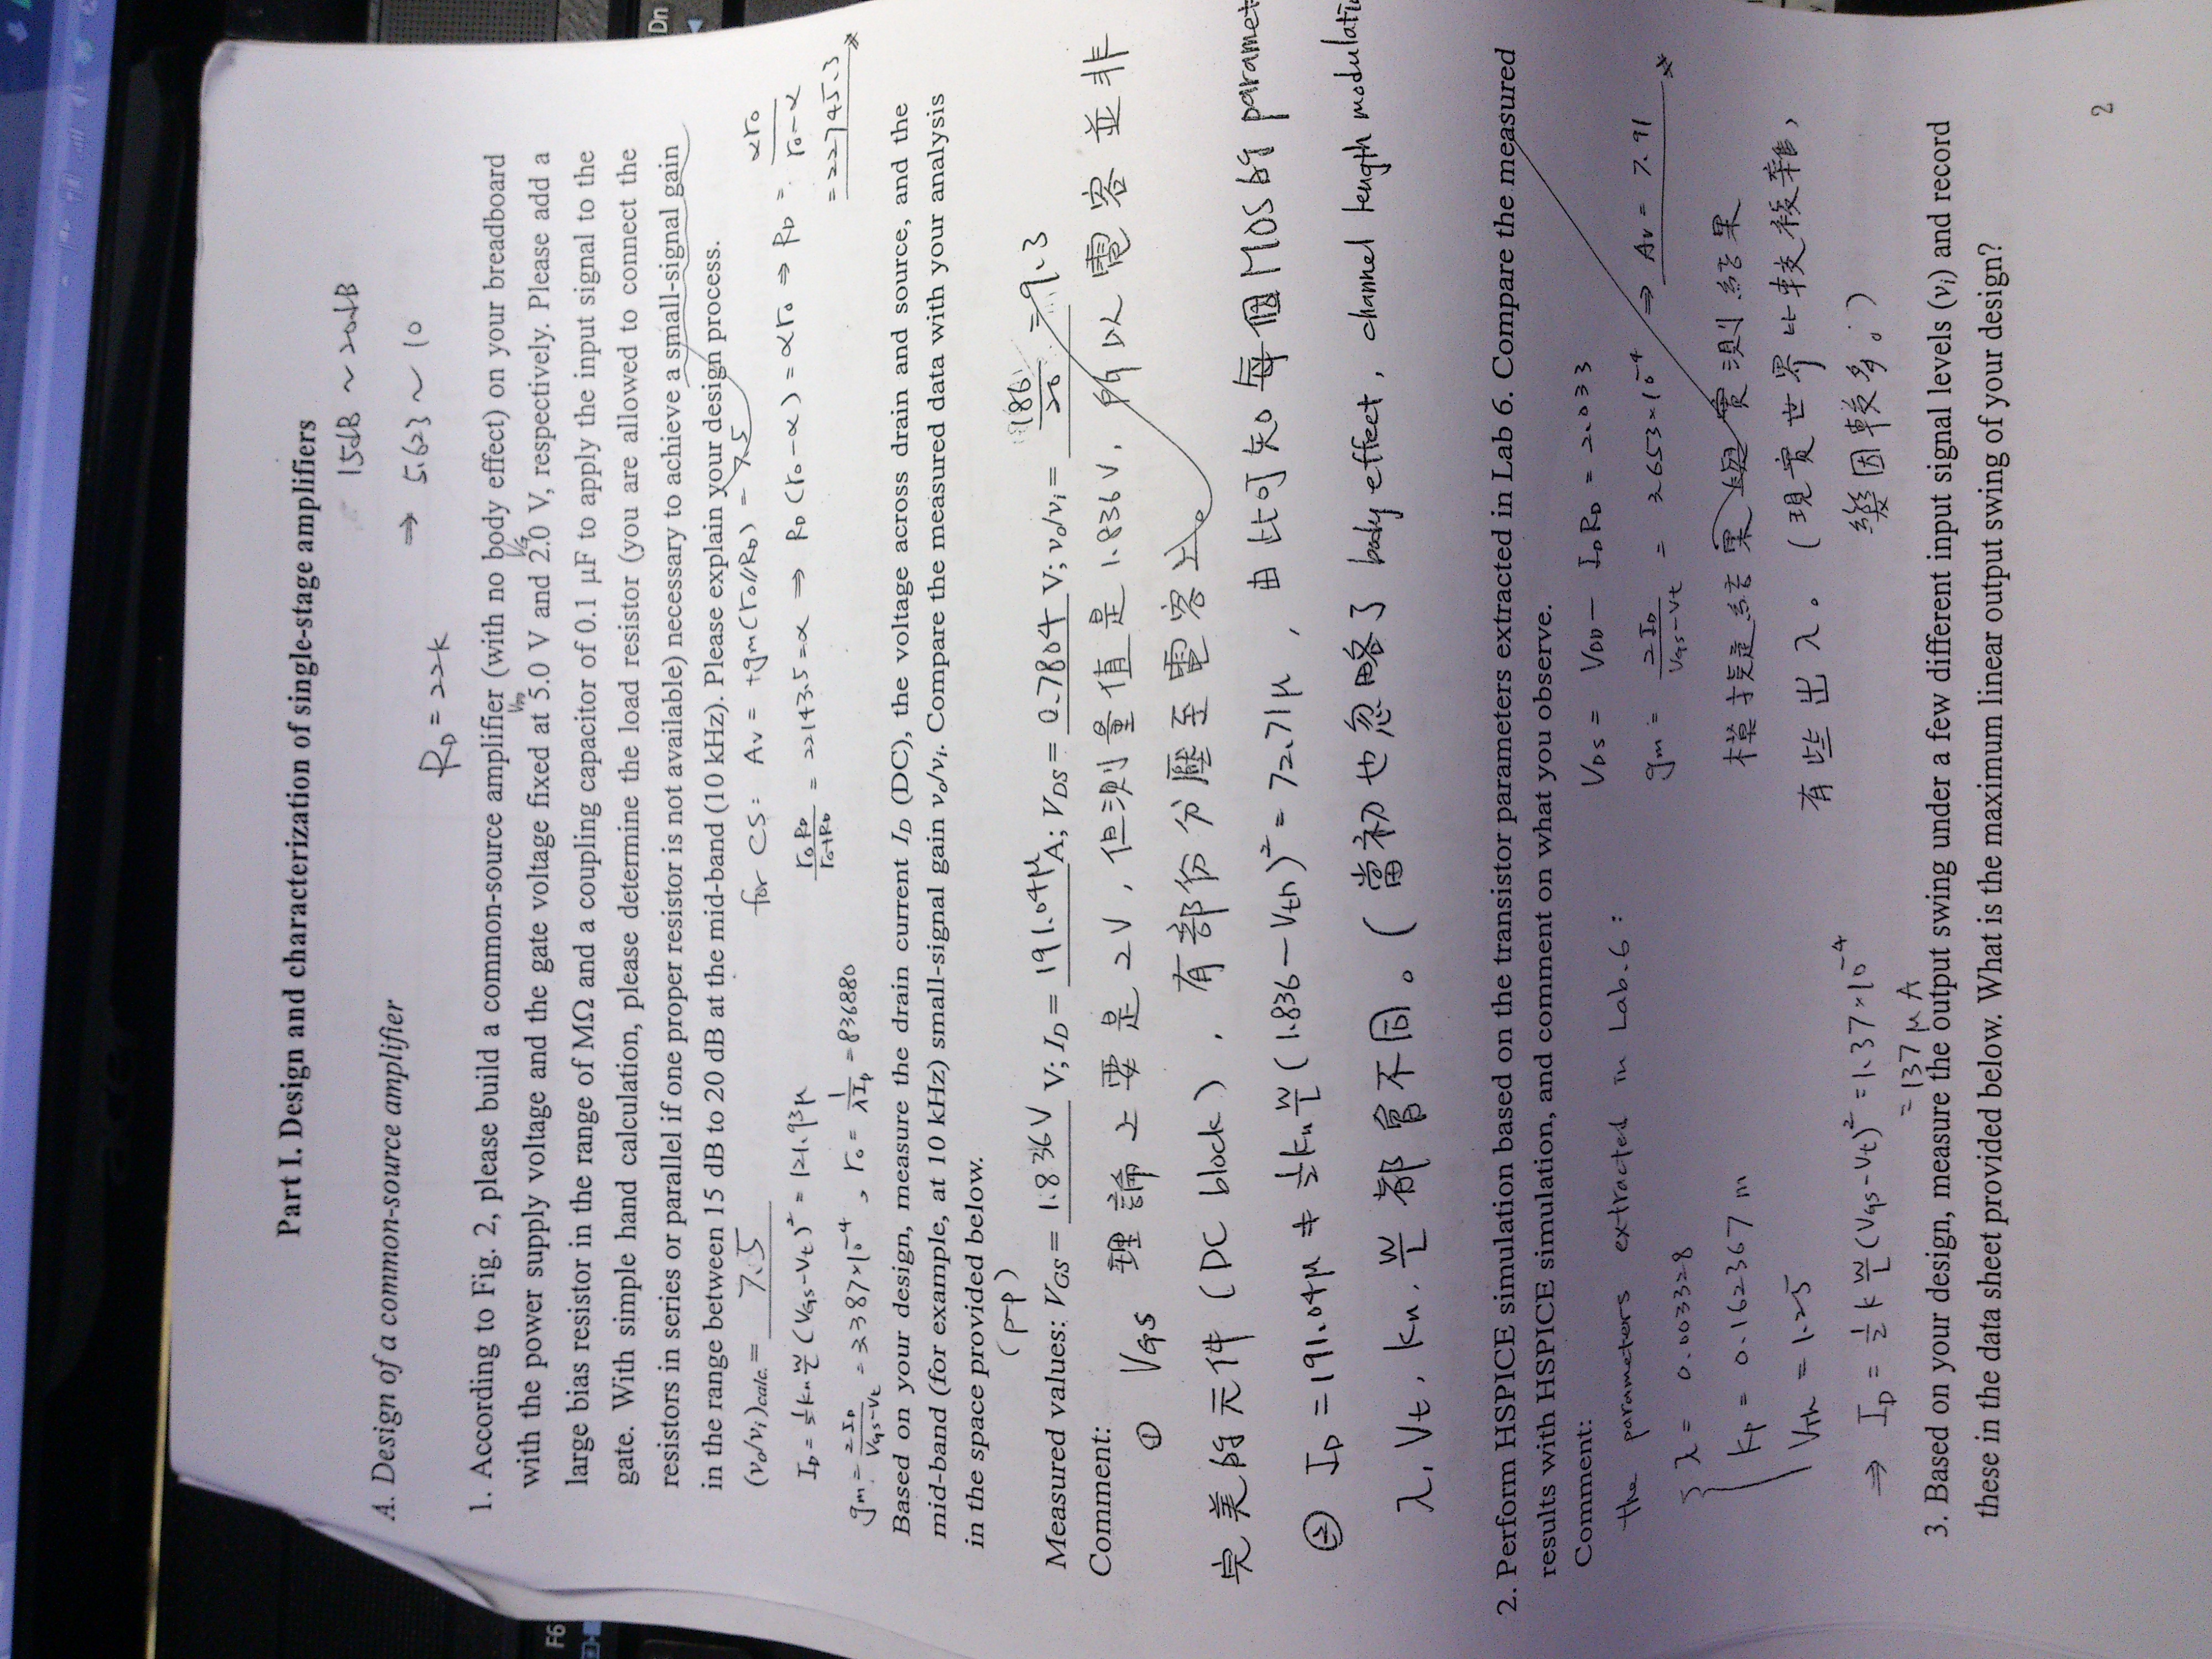 acer
F6
Dn
Part I. Design and characterization of single-stage amplifiers
15dB ~ 20dB
A. Design of a common-source amplifier
⇒ 5.623 ~ 10
R_D = 22k
1. According to Fig. 2, please build a common-source amplifier (with no body effect) on your breadboard
V_DD V_G
with the power supply voltage and the gate voltage fixed at 5.0 V and 2.0 V, respectively. Please add a
large bias resistor in the range of MΩ and a coupling capacitor of 0.1 μF to apply the input signal to the
gate. With simple hand calculation, please determine the load resistor (you are allowed to connect the
resistors in series or parallel if one proper resistor is not available) necessary to achieve a small-signal gain
in the range between 15 dB to 20 dB at the mid-band (10 kHz). Please explain your design process.
(v_o/v_i)calc. = 7.5
for CS: Av = +gm(ro//R_D) = 7.5
I_D = 1/2 kn W/L (V_GS-Vt)^2 = 121.93μ
roR_D/(ro+R_D) = 22143.5 = α ⇒ R_D(ro-α) = αro ⇒ R_D = αro/(ro-α)
= 22745.3
gm = 2I_D/(V_GS-Vt) = 3.387×10^-4, ro = 1/(λI_D) = 836880
Based on your design, measure the drain current I_D (DC), the voltage across drain and source, and the
mid-band (for example, at 10 kHz) small-signal gain v_o/v_i. Compare the measured data with your analysis
in the space provided below.
(p-p)
Measured values: V_GS = 1.836V V; I_D = 191.04μ A; V_DS = 0.7804 V; v_o/v_i = 186/20 = 9.3
Comment:
① V_GS 理論上要是2V,但測量值是1.836V,所以電容並非
完美的元件(DC block),有部份分壓至電容上。
② I_D = 191.04μ ≠ 1/2 kn W/L (1.836-Vtn)^2 = 72.71μ,由此可知每個MOS的 paramet
λ, Vt, kn, W/L 都會不同。(當初也忽略了 body effect, channel length modulati
2. Perform HSPICE simulation based on the transistor parameters extracted in Lab 6. Compare the measured
results with HSPICE simulation, and comment on what you observe.
Comment:
the parameters extracted in Lab.6:
λ = 0.003328
kp = 0.162367 m
V_Th = 1.25
⇒ I_D = 1/2 k W/L (V_GS-Vt)^2 = 1.37×10^-4
= 137 μA
V_DS = V_DD - I_D R_D = 2.033
gm = 2I_D/(V_GS-Vt) = 3.653×10^-4 ⇒ Av = 7.91
模擬結果與實測結果
有些出入。(現實世界比較複雜,
變因較多。)
3. Based on your design, measure the output swing under a few different input signal levels (v_i) and record
these in the data sheet provided below. What is the maximum linear output swing of your design?
2